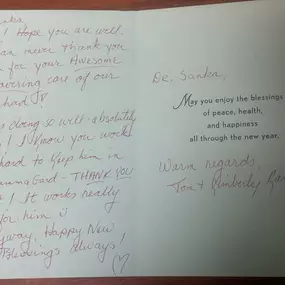 ! Hope you are well.
can never thank you
for your Awesome
care of our
doing so well - absolutely
! I know you works
hard to keep him in
Gard - THANK YOU
! It works really
for him
Happy New
Blessings always!
Dr. Sanka,
May you enjoy the blessings
of peace, health,
and happiness
all through the new year.
Warm regards,
Tom + Kimberley